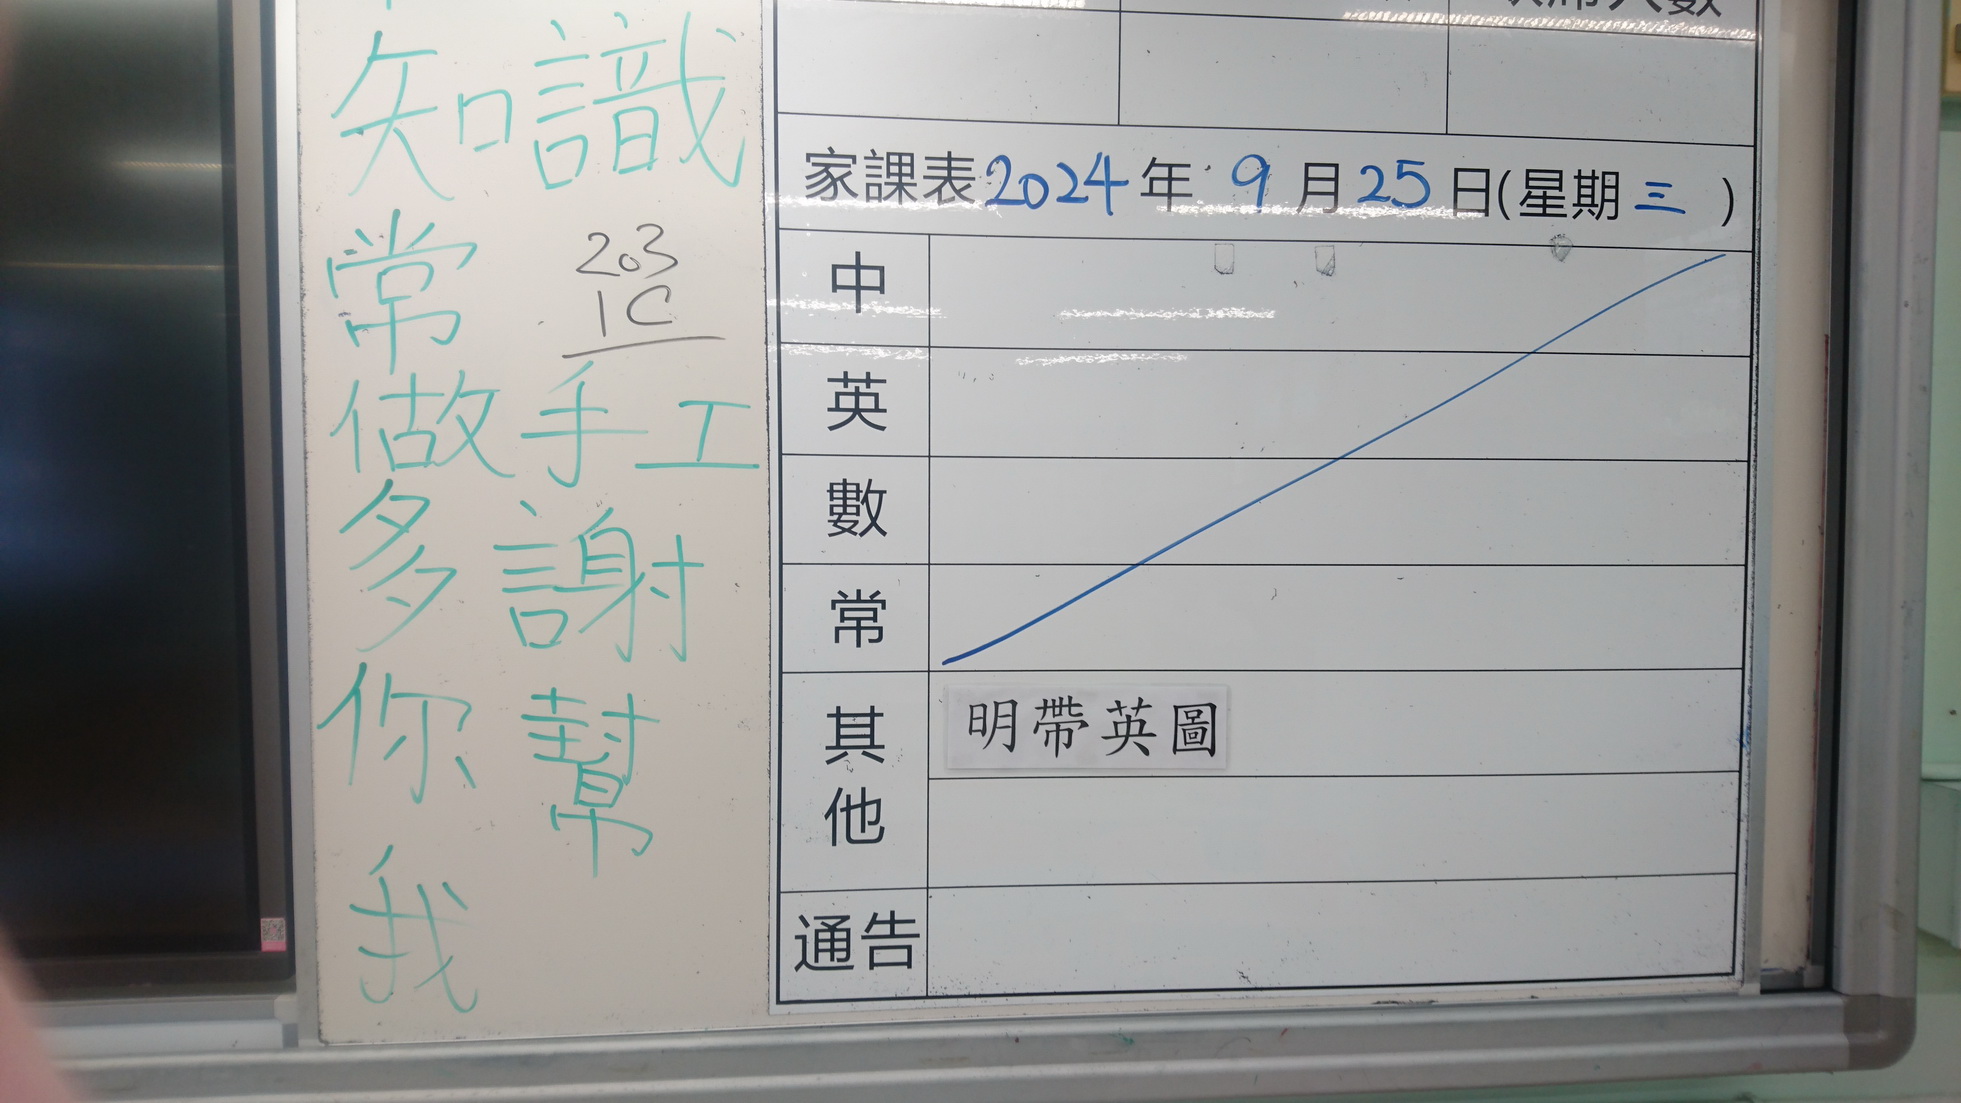 知識
常
203
1C
做手工
多謝
你幫
我
家課表2024年9月25日(星期三)
中
英
數
常
其他
明帶英圖
通告